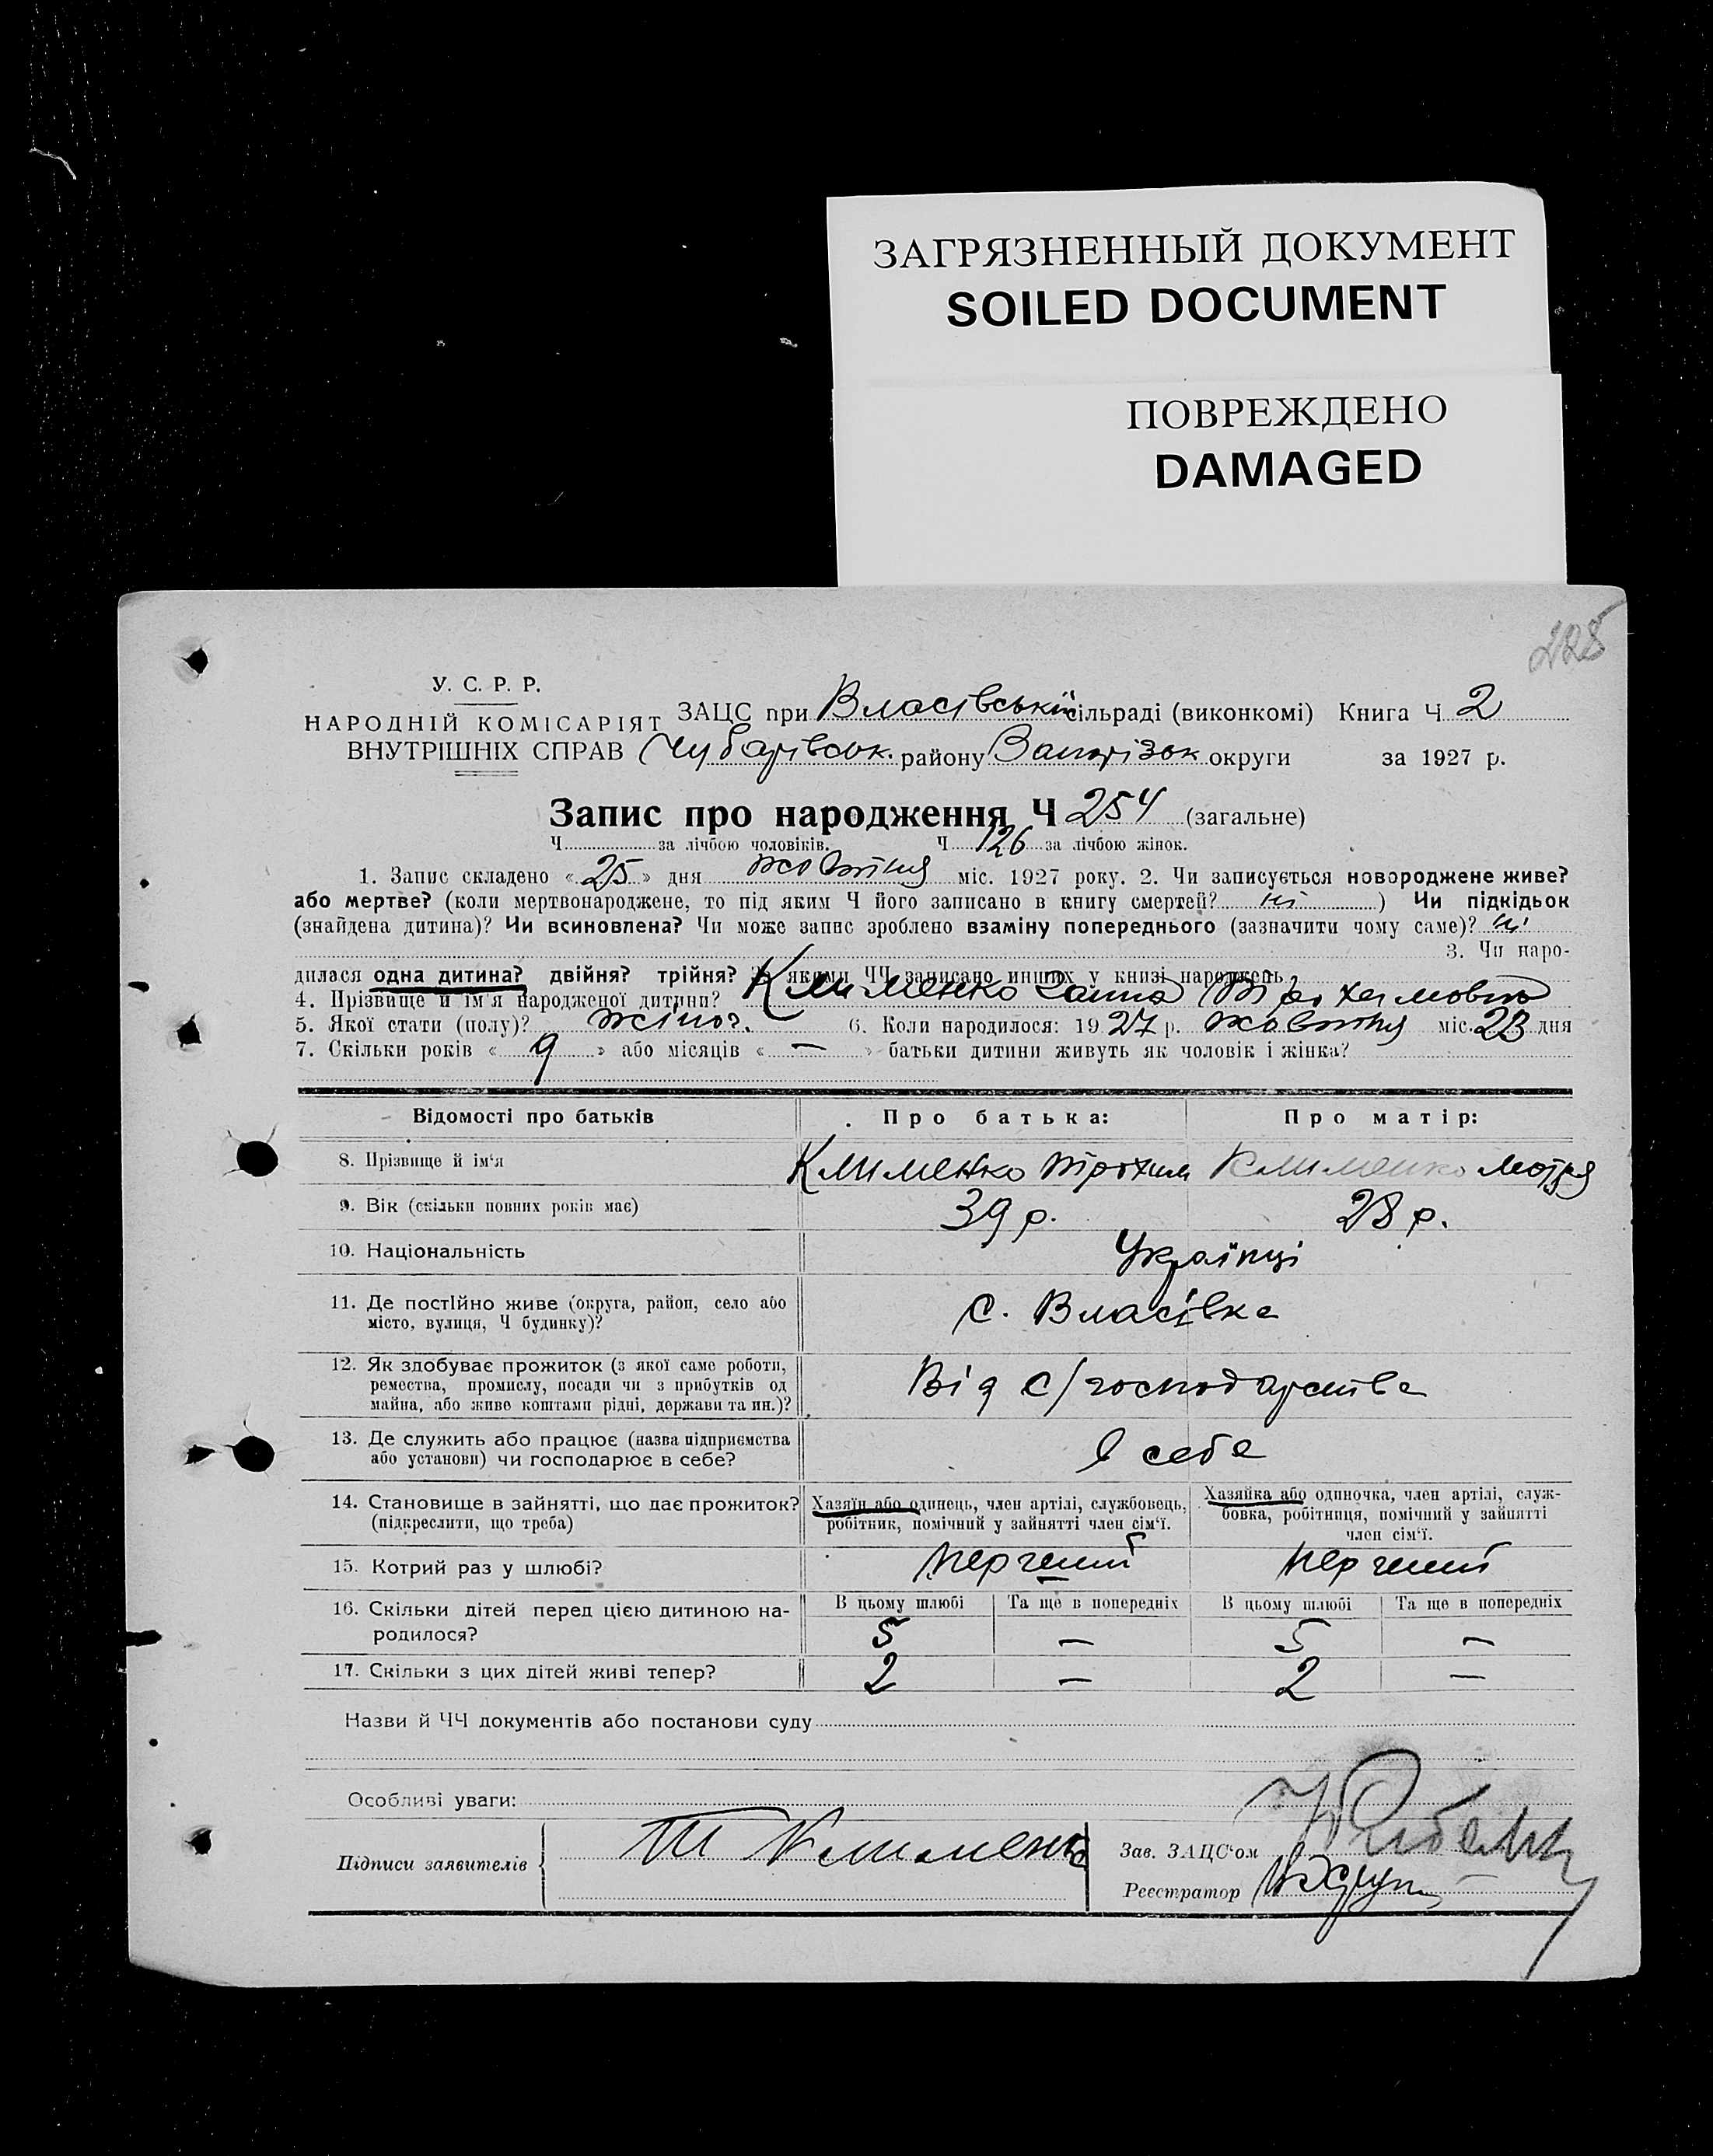 ЗАГРЯЗНЕННЫЙ ДОКУМЕНТ
SOILED DOCUMENT
ПОВРЕЖДЕНО
DAMAGED
228
У. С. Р. Р.
НАРОДНІЙ КОМІСАРІЯТ
ВНУТРІШНІХ СПРАВ
ЗАЦС при Власівській сільраді (виконкомі) Книга Ч 2
Чубарівськ. району Запорізьк округи за 1927 р.
Запис про народження Ч 254 (загальне)
Ч за лічбою чоловіків. Ч 126 за лічбою жінок.
1. Запис складено « 25 » дня жовтня міс. 1927 року. 2. Чи записується новороджене живе?
або мертве? (коли мертвонароджене, то під яким Ч його записано в книгу смертей? ні ) Чи підкідьок
(знайдена дитина)? Чи всиновлена? Чи може запис зроблено взаміну попереднього (зазначити чому саме)? ні
3. Чи наро-
дилася одна дитина? двійня? трійня? За якими ЧЧ записано инших у книзі народжень
4. Прізвище й ім'я народженої дитини? Клименко Ганна Трохимовна
5. Якої стати (полу)? жіноч. 6. Коли народилося: 1927 р. жовтня міс. 23 дня
7. Скільки років « 9 » або місяців « — » батьки дитини живуть як чоловік і жінка?
Відомості про батьків Про батька: Про матір:
8. Прізвище й ім'я Клименко Трохим Клименко Мотря
9. Вік (скільки повних років має) 39 р. 28 р.
10. Національність Українці
11. Де постійно живе (округа, район, село або
місто, вулиця, Ч будинку)? с. Власівка
12. Як здобуває прожиток (з якої саме роботи,
ремества, промислу, посади чи з прибутків од
майна, або живе коштами рідні, держави та ин.)? Від с/господарства
13. Де служить або працює (назва підприємства
або установи) чи господарює в себе? в себе
14. Становище в зайнятті, що дає прожиток?
(підкреслити, що треба)
Хазяїн або одинець, член артілі, службовець,
робітник, помічний у зайнятті член сім'ї.
Хазяйка або одиночка, член артілі, служ-
бовка, робітниця, помічний у зайнятті
член сім'ї.
15. Котрий раз у шлюбі? перчений перчений
16. Скільки дітей перед цією дитиною на-
родилося?
В цьому шлюбі Та ще в попередніх В цьому шлюбі Та ще в попередніх
5 — 5 —
17. Скільки з цих дітей живі тепер? 2 — 2 —
Назви й ЧЧ документів або постанови суду
Особливі уваги:
Підписи заявителів Т Клименко
Зав. ЗАЦС'ом
Реєстратор